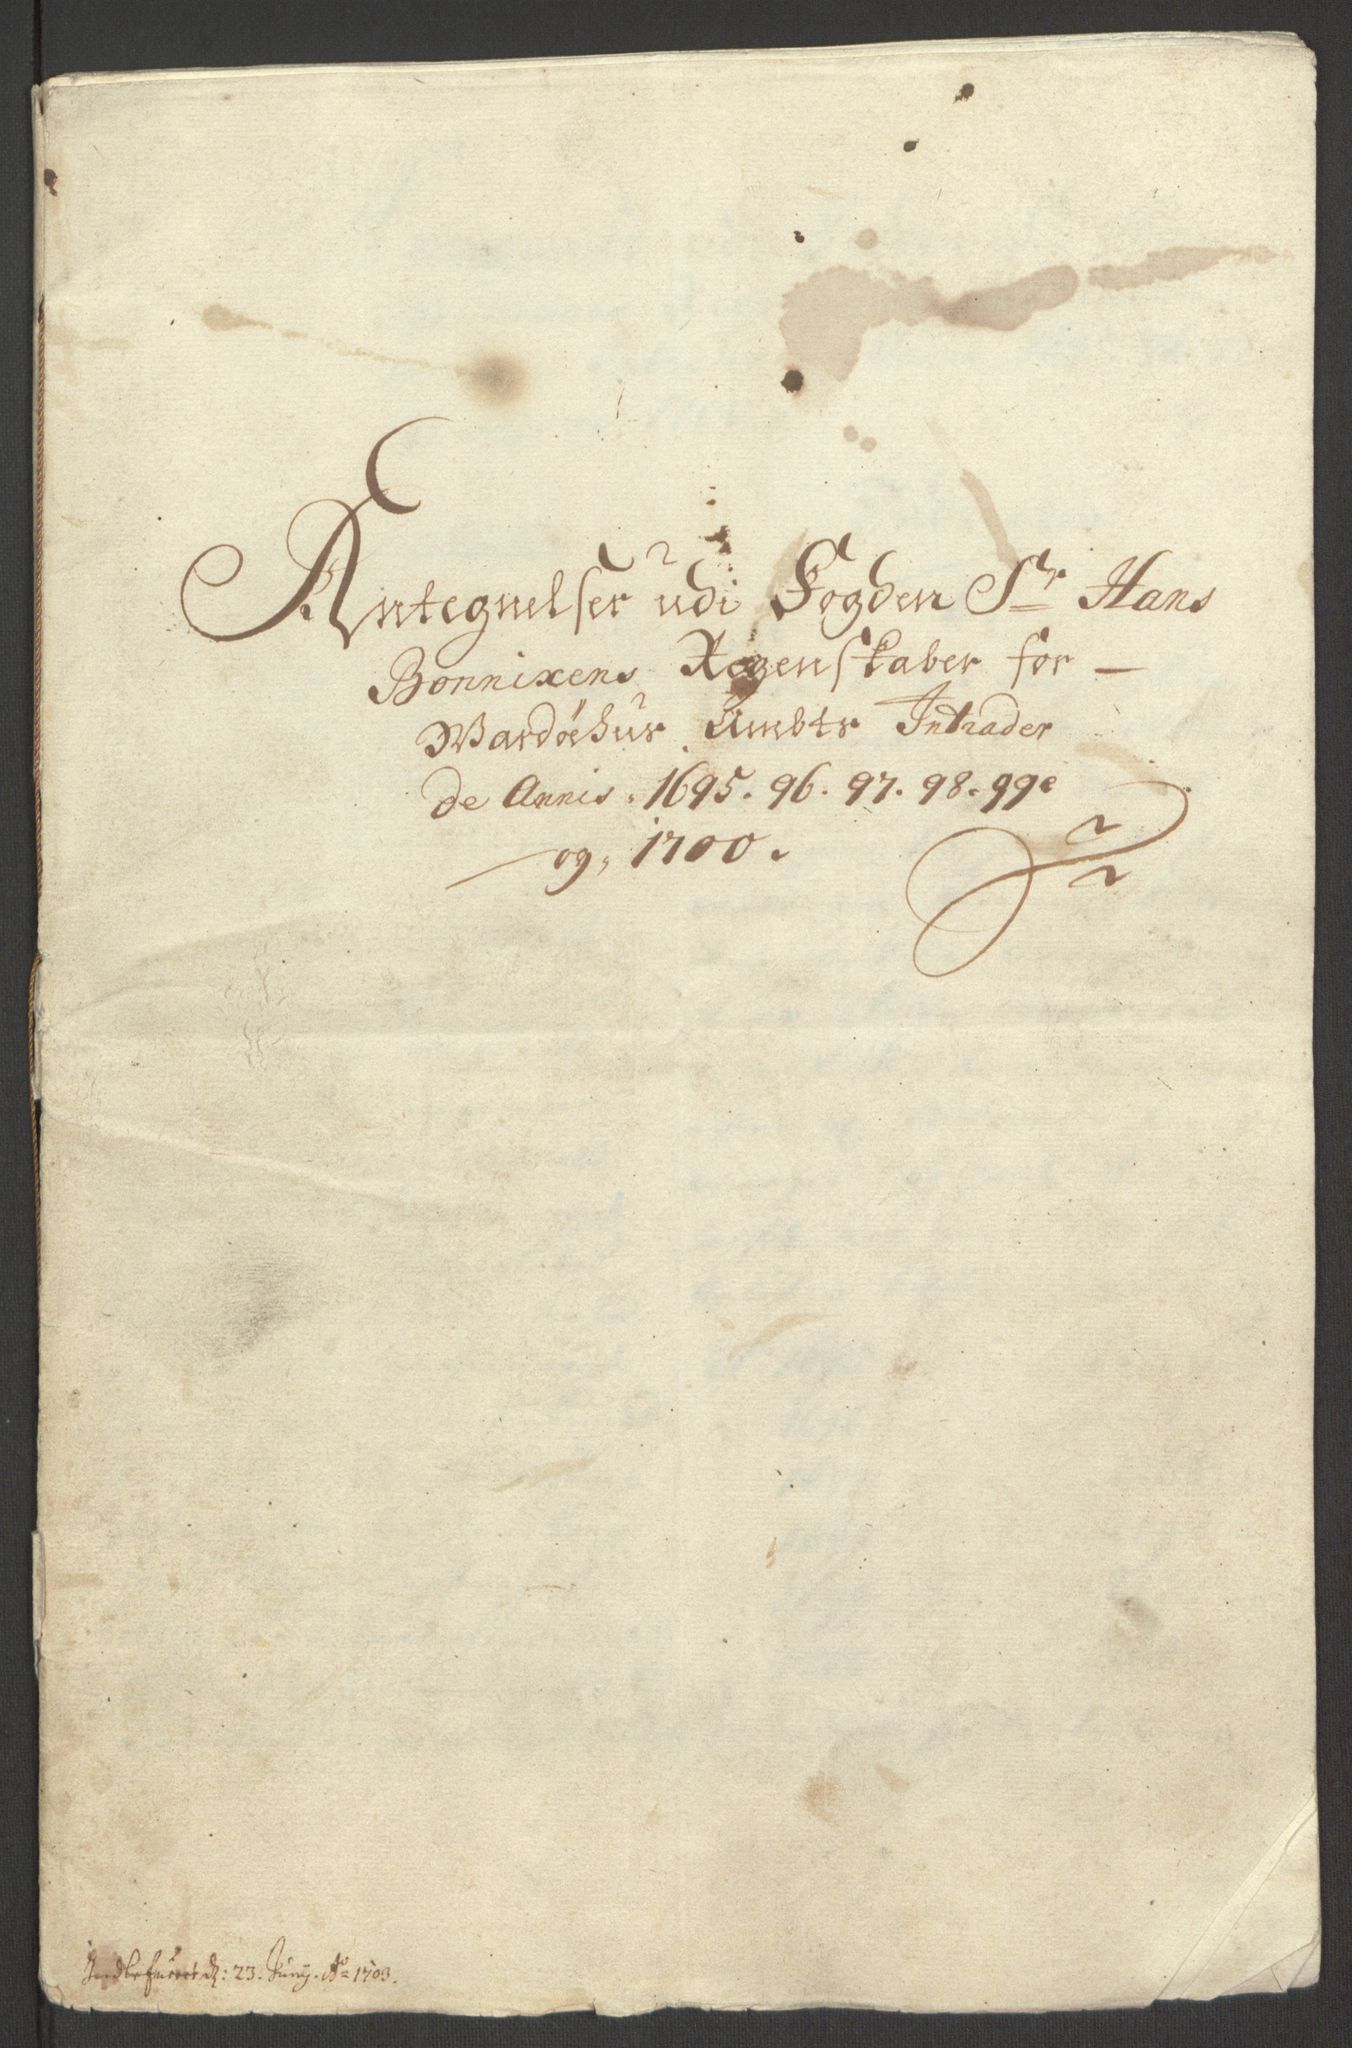 Antegnelser udi Fogden Sr Hans
Bonnixens Regenskaber for —
Wardøehus Ambts Intrader
de Annis. 1695. 96. 97. 98. 99e
og, 1700.
d: 23. Juny. Ao 1703.